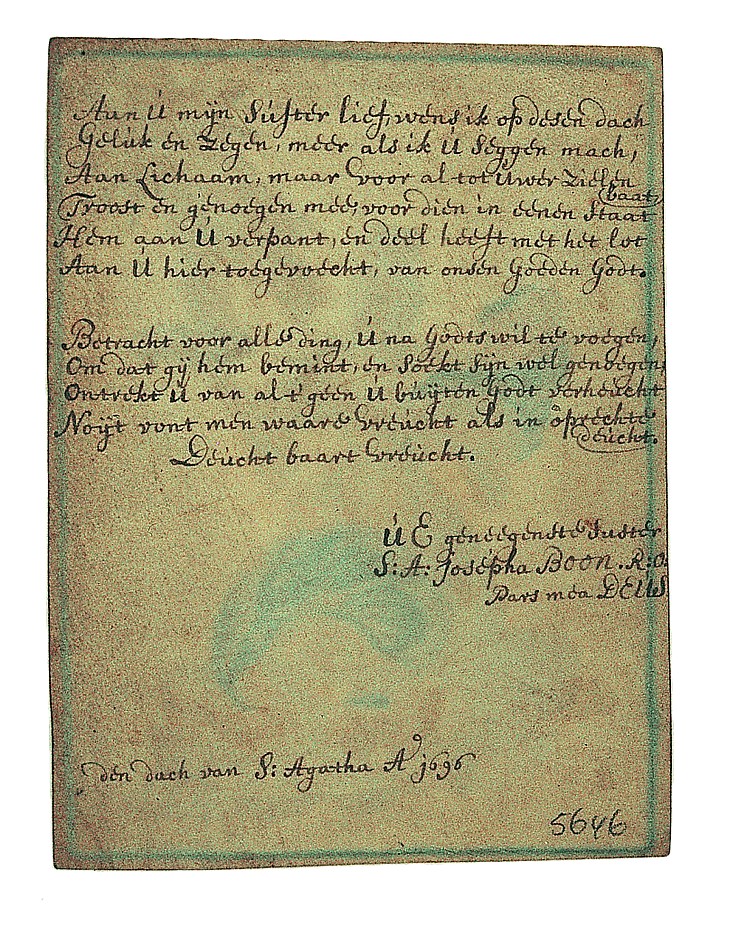 Aan U mijn Suster lief, wens ik op desen dach
Geluk en Zegen, meer als ik U seggen mach,
Aan Lichaam, maar voor al tot Uwer Zielen
baat,
Troost en genoegen mee, voor dien in eenen staat
Hem aan U verpant, en deel heeft met het lot
Aan U hier toegevoecht, van onsen Goeden Godt.
Betracht voor alle ding, U na Godts wil te voegen,
Om dat gij hem bemint, en soekt sijn wel genoegen,
Ontrekt U van al t'geen U buijten Godt verheucht
Noijt vont men waare vreucht als in oprechte
deucht.
Deucht baart vreucht.
U E geneegenste suster
S: A: Josepha BOON. R: O:
Pars mea DEUS
den dach van S: Agatha A° 1696
5646